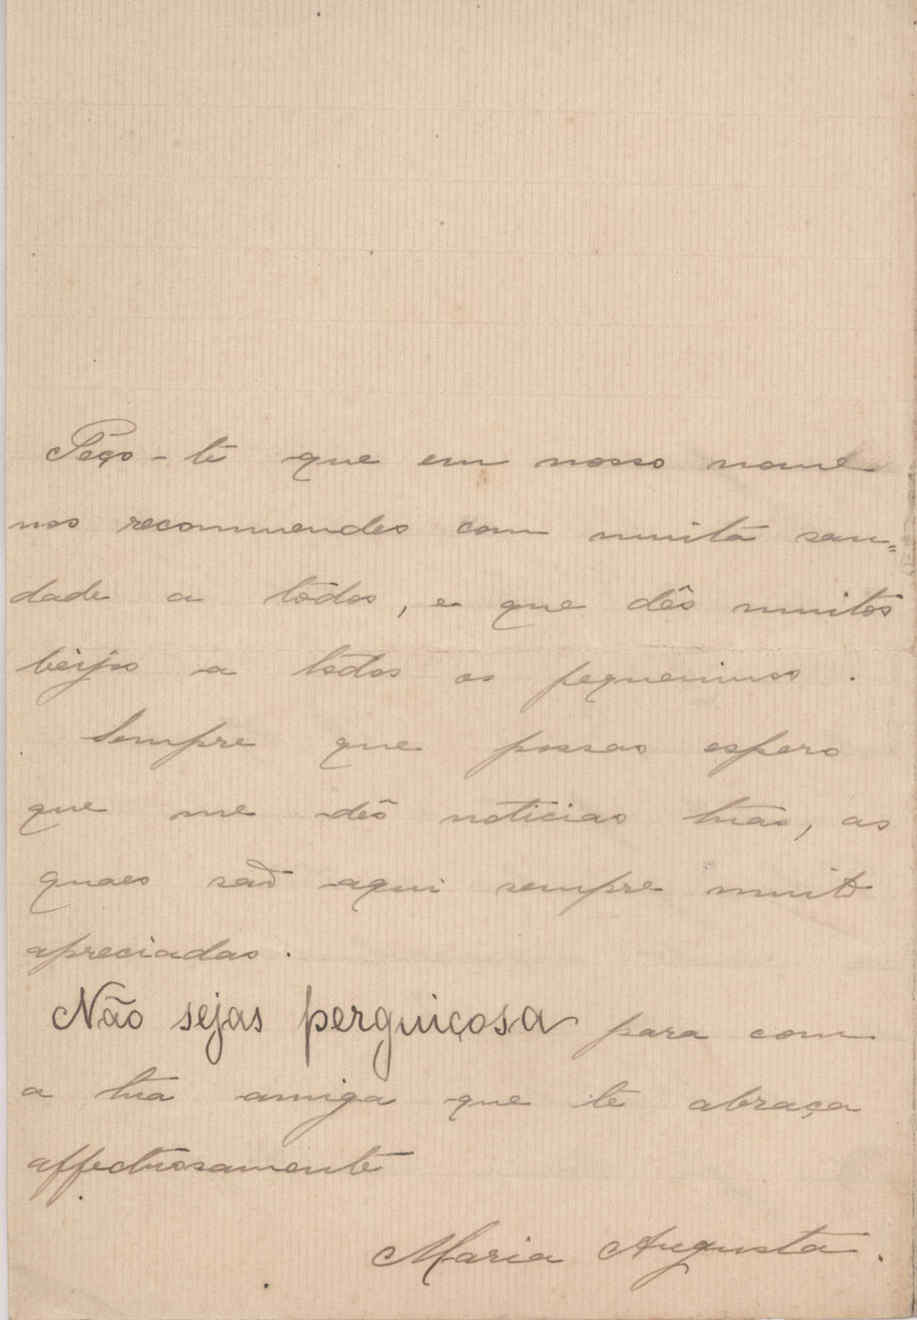 Peço-te que em nosso nome
nos recommendes com muita sau=
dade a tôdos, e que dês muitos
beijos a todos os pequeninos.
Sempre que possas espero
que me dês noticias tuas, as
quaes saõ aqui sempre muito
apreciadas.
Não sejas perguiçosa para com
a tua amiga que te abraça
affectuosamente
Maria Augusta.